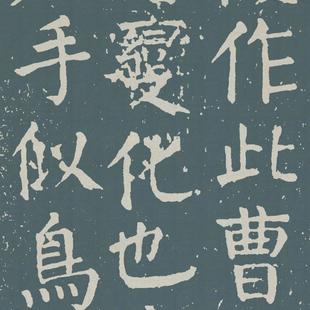 作此曹
變化也
手似鳥